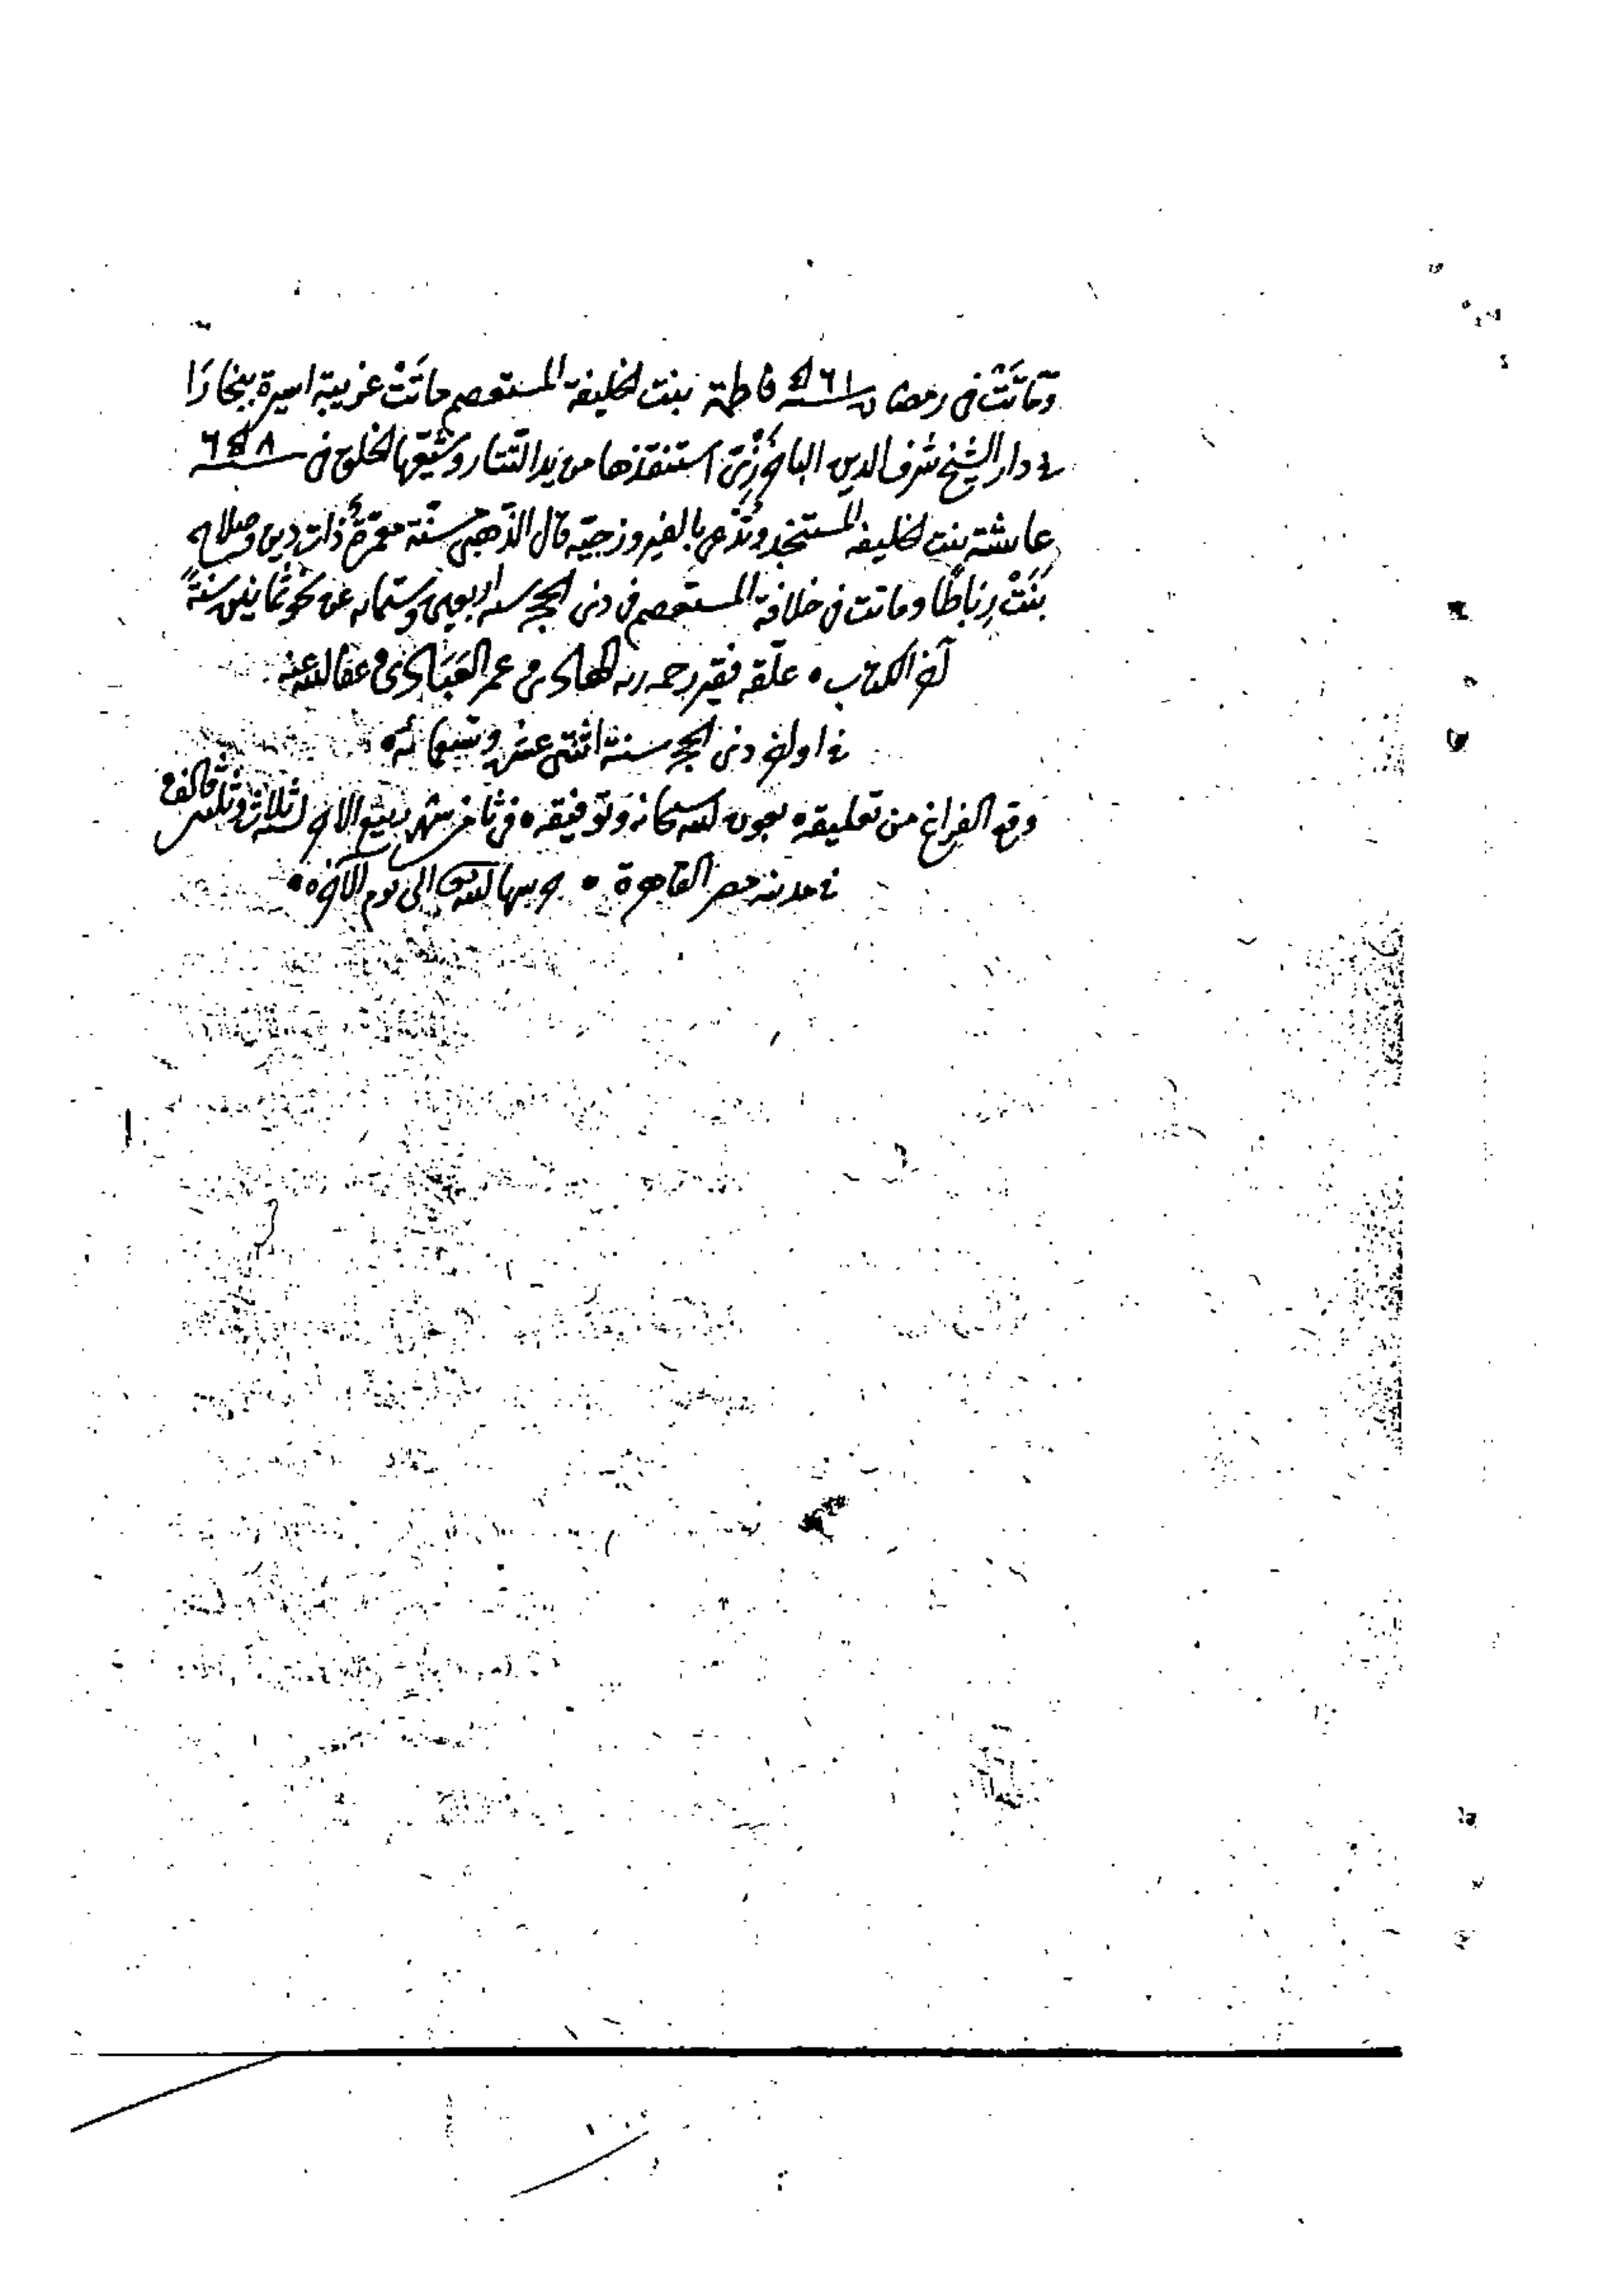 وماتت في رمضان سنة ٤٦١ فاطمة بنت الخليفة المستعصم ماتت غريبة اسيرة ببخارا
في دار الشيخ شرف الدين الباخرزي استنقذها من يد التتار وشيعها الخلق في سنة ٦٤٨
عايشة بنت الخليفة المستنجد وتدعى بالفيروزجية قال الذهبي مسنة معمرة ذات دين وصلاح
بنت رباطا وماتت في خلافة المستعصم في ذي الحجة سنة اربعين وستمائة عن نحو ثمانين سنة
آخر الكتاب • علقه فقير رحمة ربه الهادي بن عمر العبادي عفا الله عنه
في اواخر ذي الحجة سنة اثنتي عشر وتسعمائة
وقع الفراغ من تعليقه بعون الله سبحانه وتوفيقه في ثاني شهر ربيع الاول لثلاث وثلثين والف
في مدينة مصر القاهرة • حرسها الله تعالى الى يوم الآخرة •